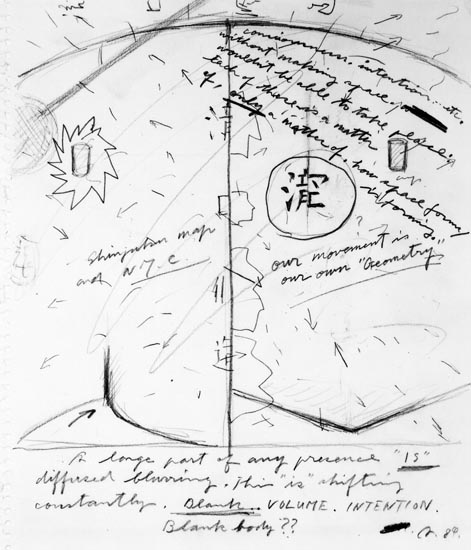 consciousness. intention... etc.
without making space
wouldn't be able to take place.
End of there is a matter
of, only a matter of, how space forms
瀧
?
Shinjuku map
and N.Y.C.
our movement is
our own "Geometry".
A large part of any presence "IS"
diffused blurring. This "is" shifting
constantly. Blank. VOLUME. INTENTION.
Blank body??